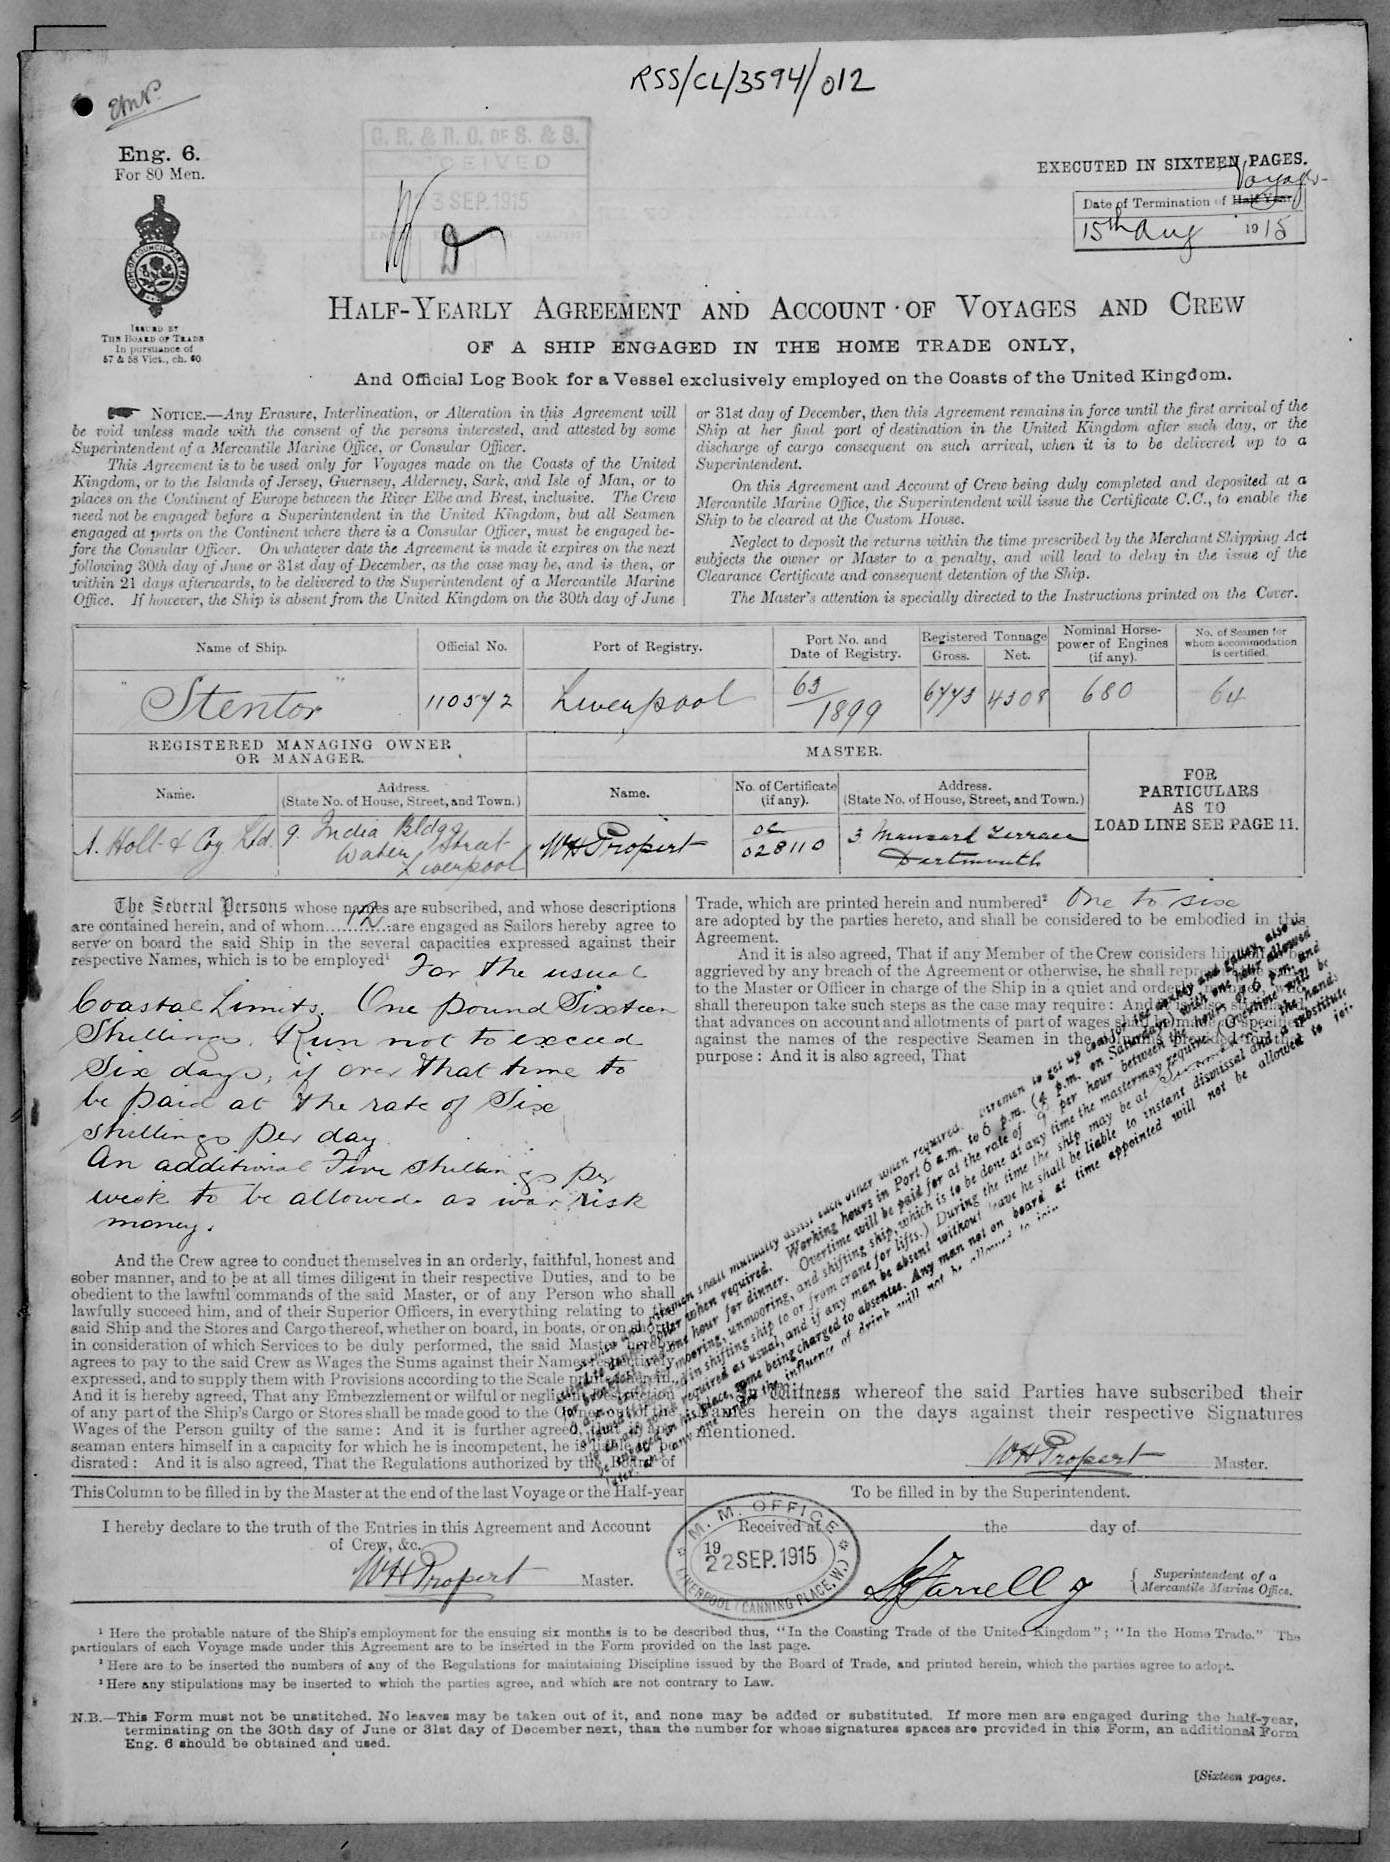 RSS/CL/3594/012
Eng. 6.
For 80 Men.
ISSUED BY
THE BOARD OF TRADE
In pursuance of
57 & 58 Vict., ch. 60.
G. R. & R. O. OF S. & S.
3 SEP. 1915
EXECUTED IN SIXTEEN PAGES.
Voyage
Date of Termination of Half Year
15th Aug 1915
HALF-YEARLY AGREEMENT AND ACCOUNT OF VOYAGES AND CREW
OF A SHIP ENGAGED IN THE HOME TRADE ONLY,
And Official Log Book for a Vessel exclusively employed on the Coasts of the United Kingdom.
NOTICE.—Any Erasure, Interlineation, or Alteration in this Agreement will
be void unless made with the consent of the persons interested, and attested by some
Superintendent of a Mercantile Marine Office, or Consular Officer.
This Agreement is to be used only for Voyages made on the Coasts of the United
Kingdom, or to the Islands of Jersey, Guernsey, Alderney, Sark, and Isle of Man, or to
places on the Continent of Europe between the River Elbe and Brest, inclusive. The Crew
need not be engaged before a Superintendent in the United Kingdom, but all Seamen
engaged at ports on the Continent where there is a Consular Officer, must be engaged be-
fore the Consular Officer. On whatever date the Agreement is made it expires on the next
following 30th day of June or 31st day of December, as the case may be, and is then, or
within 21 days afterwards, to be delivered to the Superintendent of a Mercantile Marine
Office. If however, the Ship is absent from the United Kingdom on the 30th day of June
or 31st day of December, then this Agreement remains in force until the first arrival of the
Ship at her final port of destination in the United Kingdom after such day, or the
discharge of cargo consequent on such arrival, when it is to be delivered up to a
Superintendent.
On this Agreement and Account of Crew being duly completed and deposited at a
Mercantile Marine Office, the Superintendent will issue the Certificate C.C., to enable the
Ship to be cleared at the Custom House.
Neglect to deposit the returns within the time prescribed by the Merchant Shipping Act
subjects the owner or Master to a penalty, and will lead to delay in the issue of the
Clearance Certificate and consequent detention of the Ship.
The Master's attention is specially directed to the Instructions printed on the Cover.
Name of Ship. Official No. Port of Registry. Port No. and Date of Registry. Registered Tonnage Gross. Net. Nominal Horse-power of Engines (if any). No. of Seamen for whom accommodation is certified.
"Stentor" 110572 Liverpool 63/1899 6773 4308 680 64
REGISTERED MANAGING OWNER OR MANAGER. MASTER.
Name. Address. (State No. of House, Street, and Town.) Name. No. of Certificate (if any). Address. (State No. of House, Street, and Town.)
FOR
PARTICULARS
AS TO
LOAD LINE SEE PAGE 11.
A. Holt & Coy Ltd. 9. India Bldgs Water Street Liverpool WH Propert 028110 3 Terrace Dartmouth
The Several Persons whose names are subscribed, and whose descriptions
are contained herein, and of whom 12 are engaged as Sailors hereby agree to
serve on board the said Ship in the several capacities expressed against their
respective Names, which is to be employed¹ For the usual
Coastal Limits. One pound Sixteen
Shillings. Run not to exceed
Six days, if over that time to
be paid at the rate of Six
Shillings per day
An additional Five Shillings per
week to be allowed as war risk
money.
And the Crew agree to conduct themselves in an orderly, faithful, honest and
sober manner, and to be at all times diligent in their respective Duties, and to be
obedient to the lawful commands of the said Master, or of any Person who shall
lawfully succeed him, and of their Superior Officers, in everything relating to the
said Ship and the Stores and Cargo thereof, whether on board, in boats, or on shore:
in consideration of which Services to be duly performed, the said Master hereby
agrees to pay to the said Crew as Wages the Sums against their Names respectively
expressed, and to supply them with Provisions according to the Scale printed herein.
And it is hereby agreed, That any Embezzlement or wilful or negligent destruction
of any part of the Ship's Cargo or Stores shall be made good to the Owner out of the
Wages of the Person guilty of the same: And it is further agreed, that if any
seaman enters himself in a capacity for which he is incompetent, he is liable to be
disrated: And it is also agreed, That the Regulations authorized by the Board of
Trade, which are printed herein and numbered² One to six
are adopted by the parties hereto, and shall be considered to be embodied in this
Agreement.
And it is also agreed, That if any Member of the Crew considers himself to be
aggrieved by any breach of the Agreement or otherwise, he shall represent the same
to the Master or Officer in charge of the Ship in a quiet and orderly manner, who
shall thereupon take such steps as the case may require: And it is also stipulated
that advances on account and allotments of part of wages shall be made as specified
against the names of the respective Seamen in the columns provided for that
purpose: And it is also agreed, That
firemen shall mutually assist each other when required. Firemen to get up coal for and galley, also
when required. Working hours in Port 6 a.m. to 6 p.m. (4 p.m. on Saturdays) with one hour allowed
hour for dinner. Overtime will be paid for at the rate of 9 per hour between the hours of 6 p.m. and
mooring, unmooring, and shifting ship, which is to be done at any time the master may require. Overtime will be
in shifting ship to or from crane for lifts.) During the time the ship may be at the hands
required as usual, and if any man be absent without leave he shall be liable to instant dismissal and a substitute
in his place, same being charged to absentee. Any man not on board at time appointed will not be allowed to
any under the influence of drink will not be allowed to join.
In Witness whereof the said Parties have subscribed their
Names herein on the days against their respective Signatures
mentioned.
WH Propert Master.
This Column to be filled in by the Master at the end of the last Voyage or the Half-year
I hereby declare to the truth of the Entries in this Agreement and Account
of Crew, &c.
WH Propert Master.
To be filled in by the Superintendent.
Received at the day of
M. M. OFFICE
19
22 SEP. 1915
LIVERPOOL (CANNING PLACE, W.)
Farrell
Superintendent of a
Mercantile Marine Office.
¹ Here the probable nature of the Ship's employment for the ensuing six months is to be described thus, "In the Coasting Trade of the United Kingdom"; "In the Home Trade." The
particulars of each Voyage made under this Agreement are to be inserted in the Form provided on the last page.
² Here are to be inserted the numbers of any of the Regulations for maintaining Discipline issued by the Board of Trade, and printed herein, which the parties agree to adopt.
³ Here any stipulations may be inserted to which the parties agree, and which are not contrary to Law.
N.B.—This Form must not be unstitched. No leaves may be taken out of it, and none may be added or substituted. If more men are engaged during the half-year,
terminating on the 30th day of June or 31st day of December next, than the number for whose signatures spaces are provided in this Form, an additional Form
Eng. 6 should be obtained and used.
[Sixteen pages.